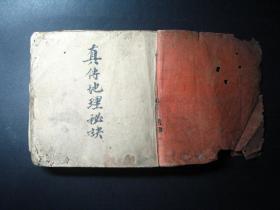 真传地理秘诀